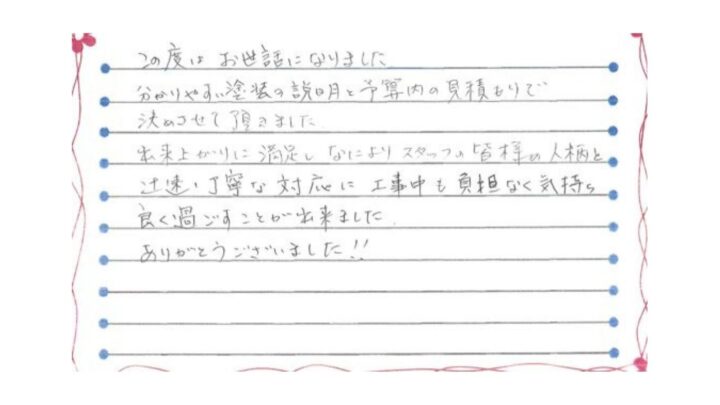 この度は お世話になりました
分かりやすい塗装の説明と予算内の見積もりで
決めさせて頂きました
出来上がりに満足し なにより スタッフの皆様の人柄と
迅速・丁寧な対応に 工事中も負担なく気持ち
良く過ごすことが出来ました
ありがとうございました!!